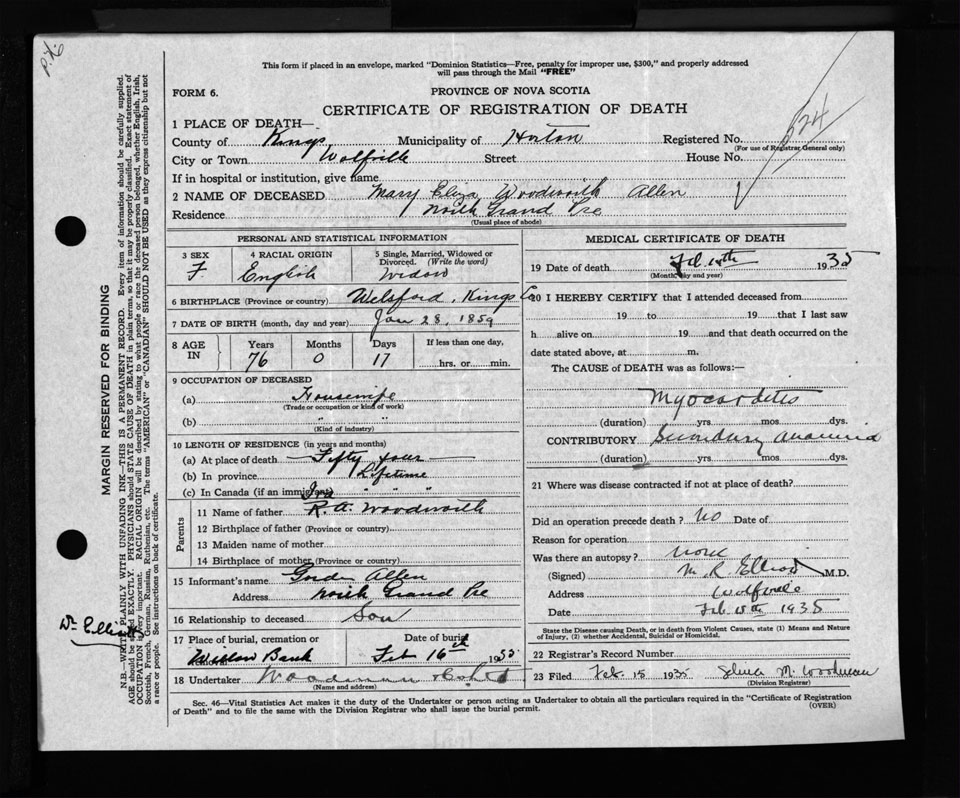 This form if placed in an envelope, marked "Dominion Statistics—Free, penalty for improper use, $300," and properly addressed
will pass through the Mail "FREE"
FORM 6.
PROVINCE OF NOVA SCOTIA
CERTIFICATE OF REGISTRATION OF DEATH
1 PLACE OF DEATH—
County of Kings Municipality of Horton Registered No. 324
(For use of Registrar General only)
City or Town Wolfville Street House No.
If in hospital or institution, give name
2 NAME OF DECEASED Mary Eliza Woodworth Allen
Residence North Grand Pre
(Usual place of abode)
PERSONAL AND STATISTICAL INFORMATION
3 SEX F
4 RACIAL ORIGIN English
5 Single, Married, Widowed or Divorced. (Write the word) Widow
6 BIRTHPLACE (Province or country) Welsford, Kings Co
7 DATE OF BIRTH (month, day and year) Jan 28, 1859
8 AGE IN Years 76 Months 0 Days 17 If less than one day, hrs. or min.
9 OCCUPATION OF DECEASED
(a) Housewife
(Trade or occupation or kind of work)
(b) " "
(Kind of industry)
10 LENGTH OF RESIDENCE (in years and months)
(a) At place of death Fifty four
(b) In province Lifetime
(c) In Canada (if an immigrant) " " "
Parents
11 Name of father R. A. Woodworth
12 Birthplace of father (Province or country)
13 Maiden name of mother
14 Birthplace of mother (Province or country)
15 Informant's name Allen
Address North Grand Pre
16 Relationship to deceased Son
17 Place of burial, cremation or Willow Bank
Date of burial Feb 16th 1935
18 Undertaker Woodman
(Name and address)
MEDICAL CERTIFICATE OF DEATH
19 Date of death Feb 14th 1935
(Month, day and year)
20 I HEREBY CERTIFY that I attended deceased from
19 to 19 that I last saw
h alive on 19 and that death occurred on the
date stated above, at m.
The CAUSE of DEATH was as follows:
Myocarditis
(duration) yrs mos dys.
CONTRIBUTORY Secondary Anaemia
(duration) yrs mos dys.
21 Where was disease contracted if not at place of death?
Did an operation precede death? No Date of
Reason for operation
Was there an autopsy? None
(Signed) M. R. Elliott M.D.
Address Wolfville
Date Feb. 15th 1935
State the Disease causing Death, or in death from Violent Causes, state (1) Means and Nature
of Injury, (2) whether Accidental, Suicidal or Homicidal.
22 Registrar's Record Number
23 Filed Feb. 15 1935 M. Woodman
(Division Registrar)
Sec. 46—Vital Statistics Act makes it the duty of the Undertaker or person acting as Undertaker to obtain all the particulars required in the "Certificate of Registration
of Death" and to file the same with the Division Registrar who shall issue the burial permit.
(OVER)
MARGIN RESERVED FOR BINDING
N.B.—WRITE PLAINLY WITH UNFADING INK—THIS IS A PERMANENT RECORD. Every item of information should be carefully supplied.
AGE should be stated EXACTLY. PHYSICIANS should STATE CAUSE OF DEATH in plain terms, so that it may be properly classified. Exact statement of
OCCUPATION is very important. RACIAL ORIGIN will be described by stating to what people or race the deceased person belonged, whether English, Irish,
Scottish, French, German, Russian, Ruthenian, etc. The terms "AMERICAN" or "CANADIAN" SHOULD NOT BE USED as they express citizenship but not
a race or people. See instructions on back of certificate.
Dr Elliott